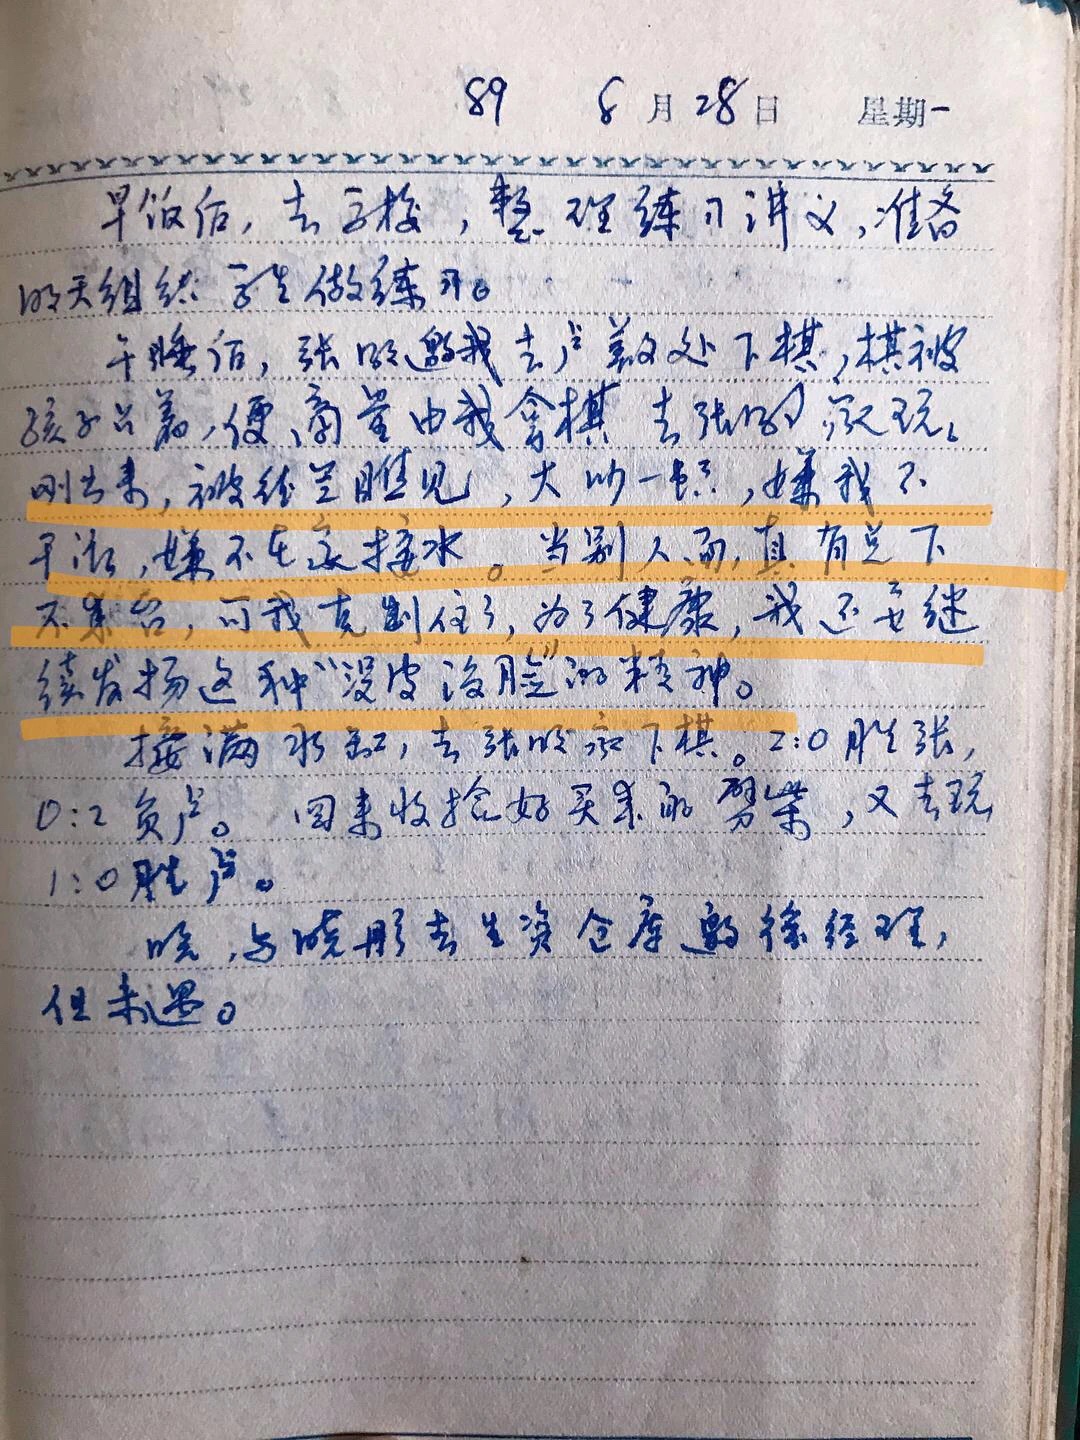 89 8月28日 星期一
早饭后,去学校,整理练习讲义,准备
明天组织学生做练习。
午睡后,张明邀我去卢义处下棋,棋被
孩子占着,便商量由我拿棋去张明家玩。
刚出来,被徐兰瞧见,大吵一顿,嫌我不
干活,嫌不在家接水。当别人面,真有点下
不来台,可我克制住了,为了健康,我还要继
续发扬这种“没皮没脸”的精神。
接满水缸,去张明家下棋。2:0胜张,
0:2负卢。回来收拾好买来的劈柴,又去玩
1:0胜卢。
晚,与晓彤去生资仓库邀徐经理,
但未遇。